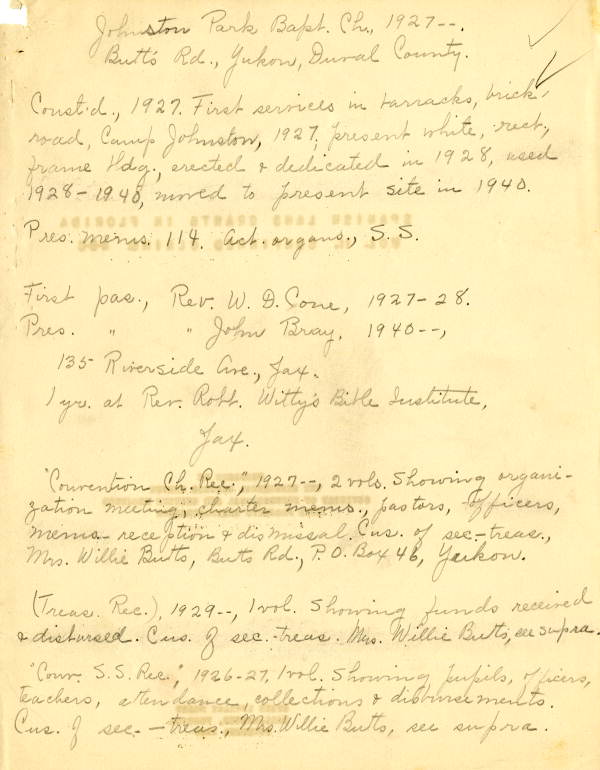 Johnston Park Bapt. Ch., 1927--.
Butts Rd., Yukon, Duval County.
Const'd., 1927. First services in barracks, brick
road, Camp Johnston, 1927, present white, rect.,
frame bldg., erected & dedicated in 1928, used
1928-1940, moved to present site in 1940.
Pres. mems. 114. Act. organs., S.S.
First pas., Rev. W. D. Cone, 1927-28.
Pres. " " John Bray, 1940--,
135 Riverside Ave., Jax.
1 yr. at Rev. Robt. Witty's Bible Institute,
Jax.
"Convention Ch. Rec.", 1927--, 2 vols. Showing organi-
zation meeting, charter mems., pastors, officers,
mems- reception & dismissal. Cus. of sec-treas.,
Mrs. Willie Butts, Butts Rd., P.O. Box 46, Yukon.
(Treas. Rec.), 1929--, 1 vol. Showing funds received
& disbursed. Cus. of sec.-treas. Mrs. Willie Butts, see supra.
"Conv. S.S. Rec.", 1926-27, 1 vol. Showing pupils, officers,
teachers, attendance, collections & disbursements.
Cus. of sec.--treas., Mrs. Willie Butts, see supra.